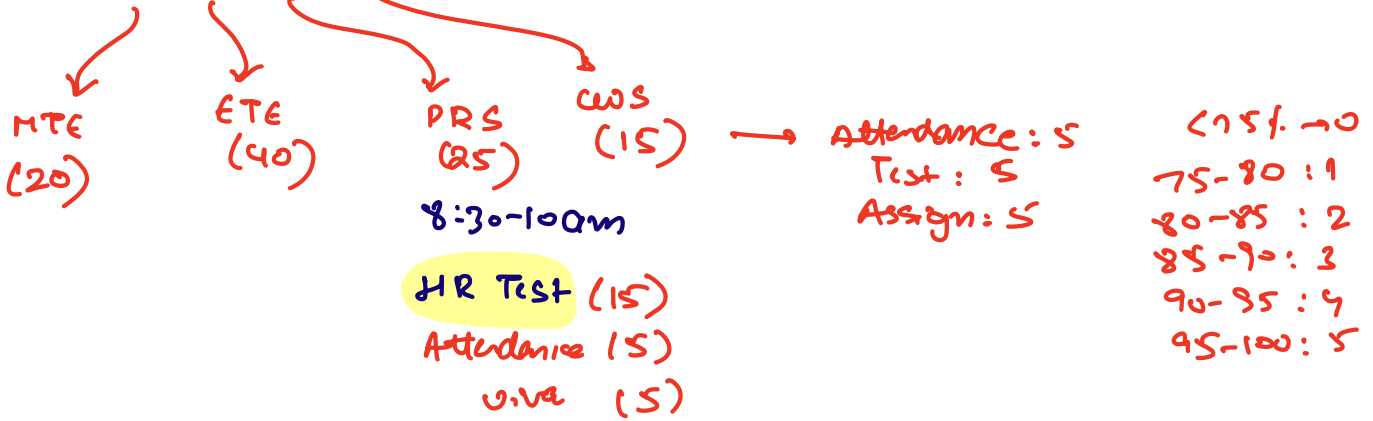 MTE
(20)
ETE
(40)
PRS
(25)
8:30-10am
HR Test (15)
Attendance (5)
viva (5)
CWS
(15)
Attendance: 5
Test: 5
Assign: 5
<75% → 0
75-80 : 1
80-85 : 2
85-90 : 3
90-95 : 4
95-100 : 5